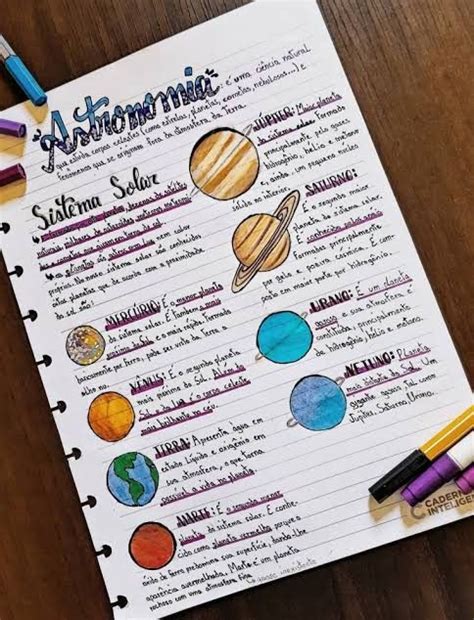 "Astronomia": é uma ciência natural
que estuda corpos celestes (como estrelas, planetas, cometas, nebulosas...) e
fenômenos que se originam fora da atmosfera da Terra.
Sistema Solar
os planetas são astros sem luz, nem calor
próprios. No nosso sistema solar são conhecidos
oito planetas que de acordo com a proximidade
do sol são:
MERCÚRIO: É o menor planeta
do sistema solar. É também o mais
próximo do Sol e o mais rápido. Formado
basicamente por ferro, pode ser visto da Terra a
olho nu.
VENUS: É o segundo planeta
mais próximo do Sol. Além do
Sol e da Lua é o corpo celeste
mais brilhante no céu.
TERRA: Apresenta água em
estado líquido e oxigênio em
sua atmosfera, o que torna
possível a vida no planeta.
MARTE: É o segundo menor
planeta do sistema solar. É conhe-
cido como planeta vermelho porque o
óxido de ferro predomina sua superfície, dando-lhe
aparência avermelhada. Marte é um planeta
rochoso com uma atmosfera fina
JÚPITER: Maior planeta
do sistema solar. Formado
principalmente pelos gases
hidrogênio, hélio e metano
e, ainda, um pequeno núcleo
sólido no interior.
SATURNO:
É o segundo maior
planeta do sistema solar.
É conhecido pelos anéis
formados principalmente
por gelo e poeira cósmica. É com-
posto em maior parte por hidrogênio.
URANO: É um planeta
gasoso e sua atmosfera é
constituída, principalmente,
de hidrogênio, hélio e metano.
NETUNO: Planeta
mais distante do Sol. Um
gigante gasoso, tal como
Júpiter, Saturno, Urano.
CADERNO
INTELIGE